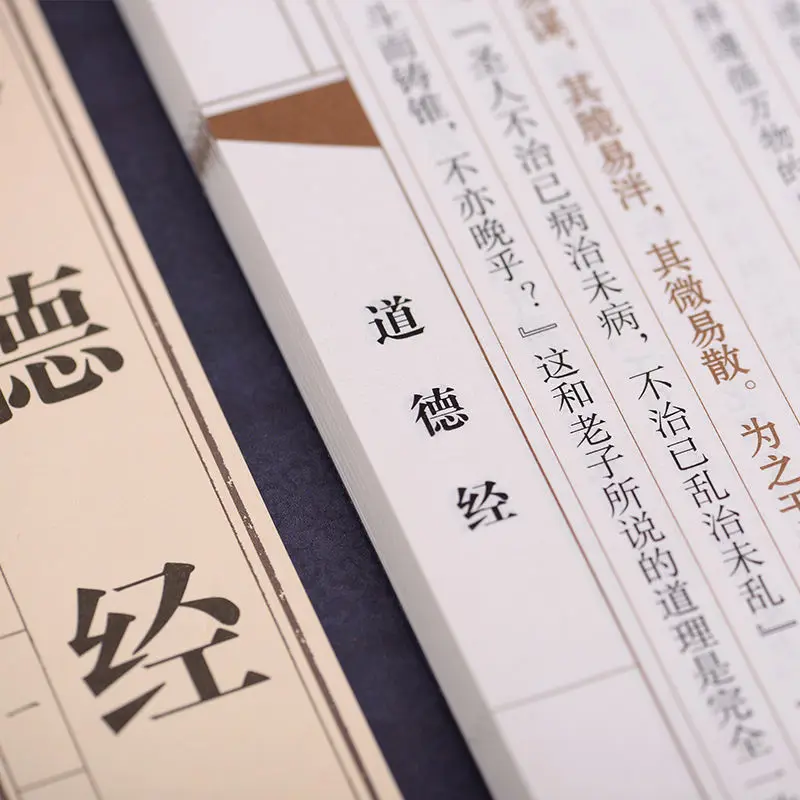 样遵循万物的
易谋，其脆易泮，其微易散。为之于
『圣人不治已病治未病，不治已乱治未乱』
斗而铸锥，不亦晚乎？』这和老子所说的道理是完全一
道德经
德经
一